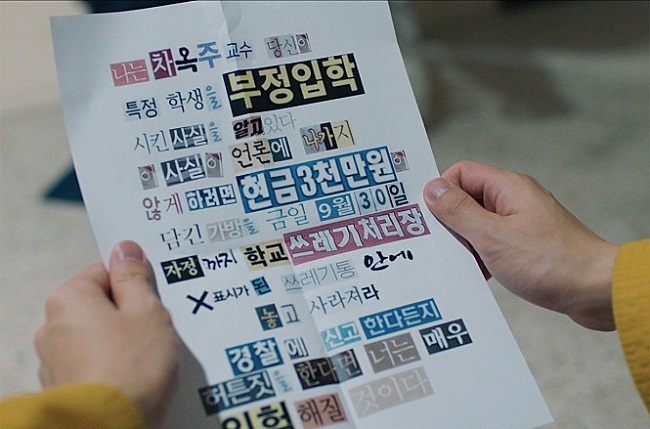 나는 차옥주 교수 당신이
특정 학생을 부정입학
시킨 사실을 알고있다
이 사실이 언론에 나가지
않게 하려면 현금3천만원이
담긴 가방을 금일 9월 30일
자정까지 학교 쓰레기처리장
X 표시가 된 쓰레기통 안에
놓고 사라져라
경찰에 신고 한다든지
허튼짓을 한다면 너는 매우
위험 해질 것이다